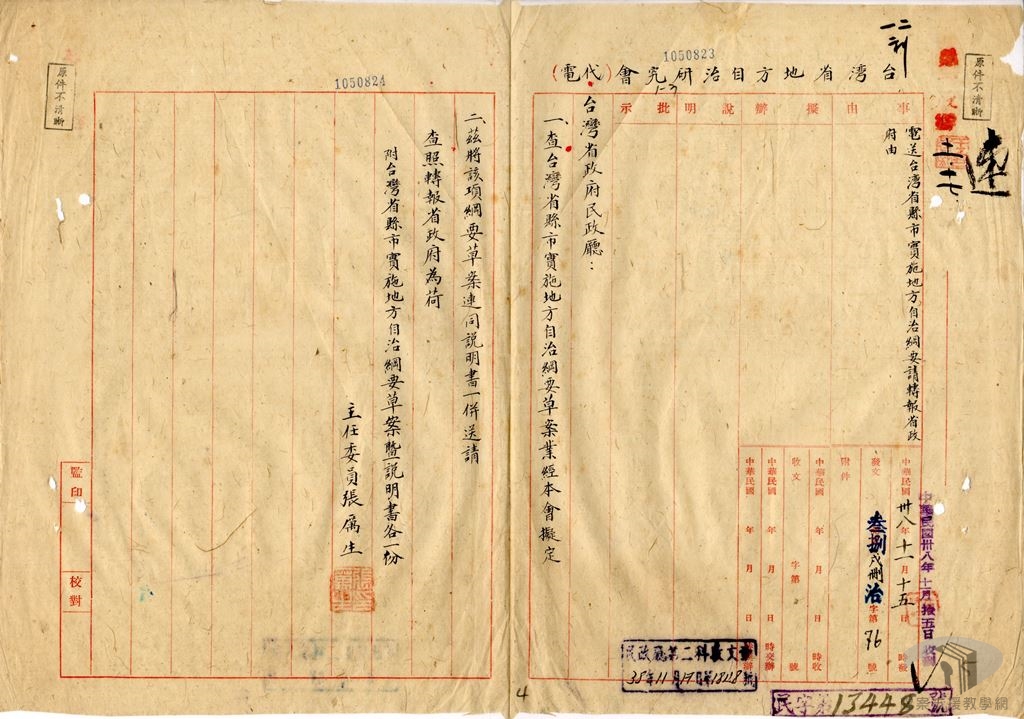 1050823
台灣省地方自治研究會(代電)
原件不清晰
速
十一、十七、
事由
擬辦
說明
批示
電送台灣省縣市實施地方自治綱要請轉報省政
府由
中華民國卅八年十一月十五日 時發
發文 叁捌戌刪治字第76號
附件
中華民國 年 月 日 時收
收文 字第 號
中華民國 年 月 日 時交辦
中華民國 年 月 日
中華民國卅八年十一月拾五日
台灣省政府民政廳：
一、查台灣省縣市實施地方自治綱要草案業經本會擬定
民政廳第二科收文章
38年11月17日
民字第13448號
4
1050824
原件不清晰
二、茲將該項綱要草案連同説明書一併送請
查照轉報省政府為荷
附台灣省縣市實施地方自治綱要草案暨説明書各一份
主任委員張厲生
監印
校對